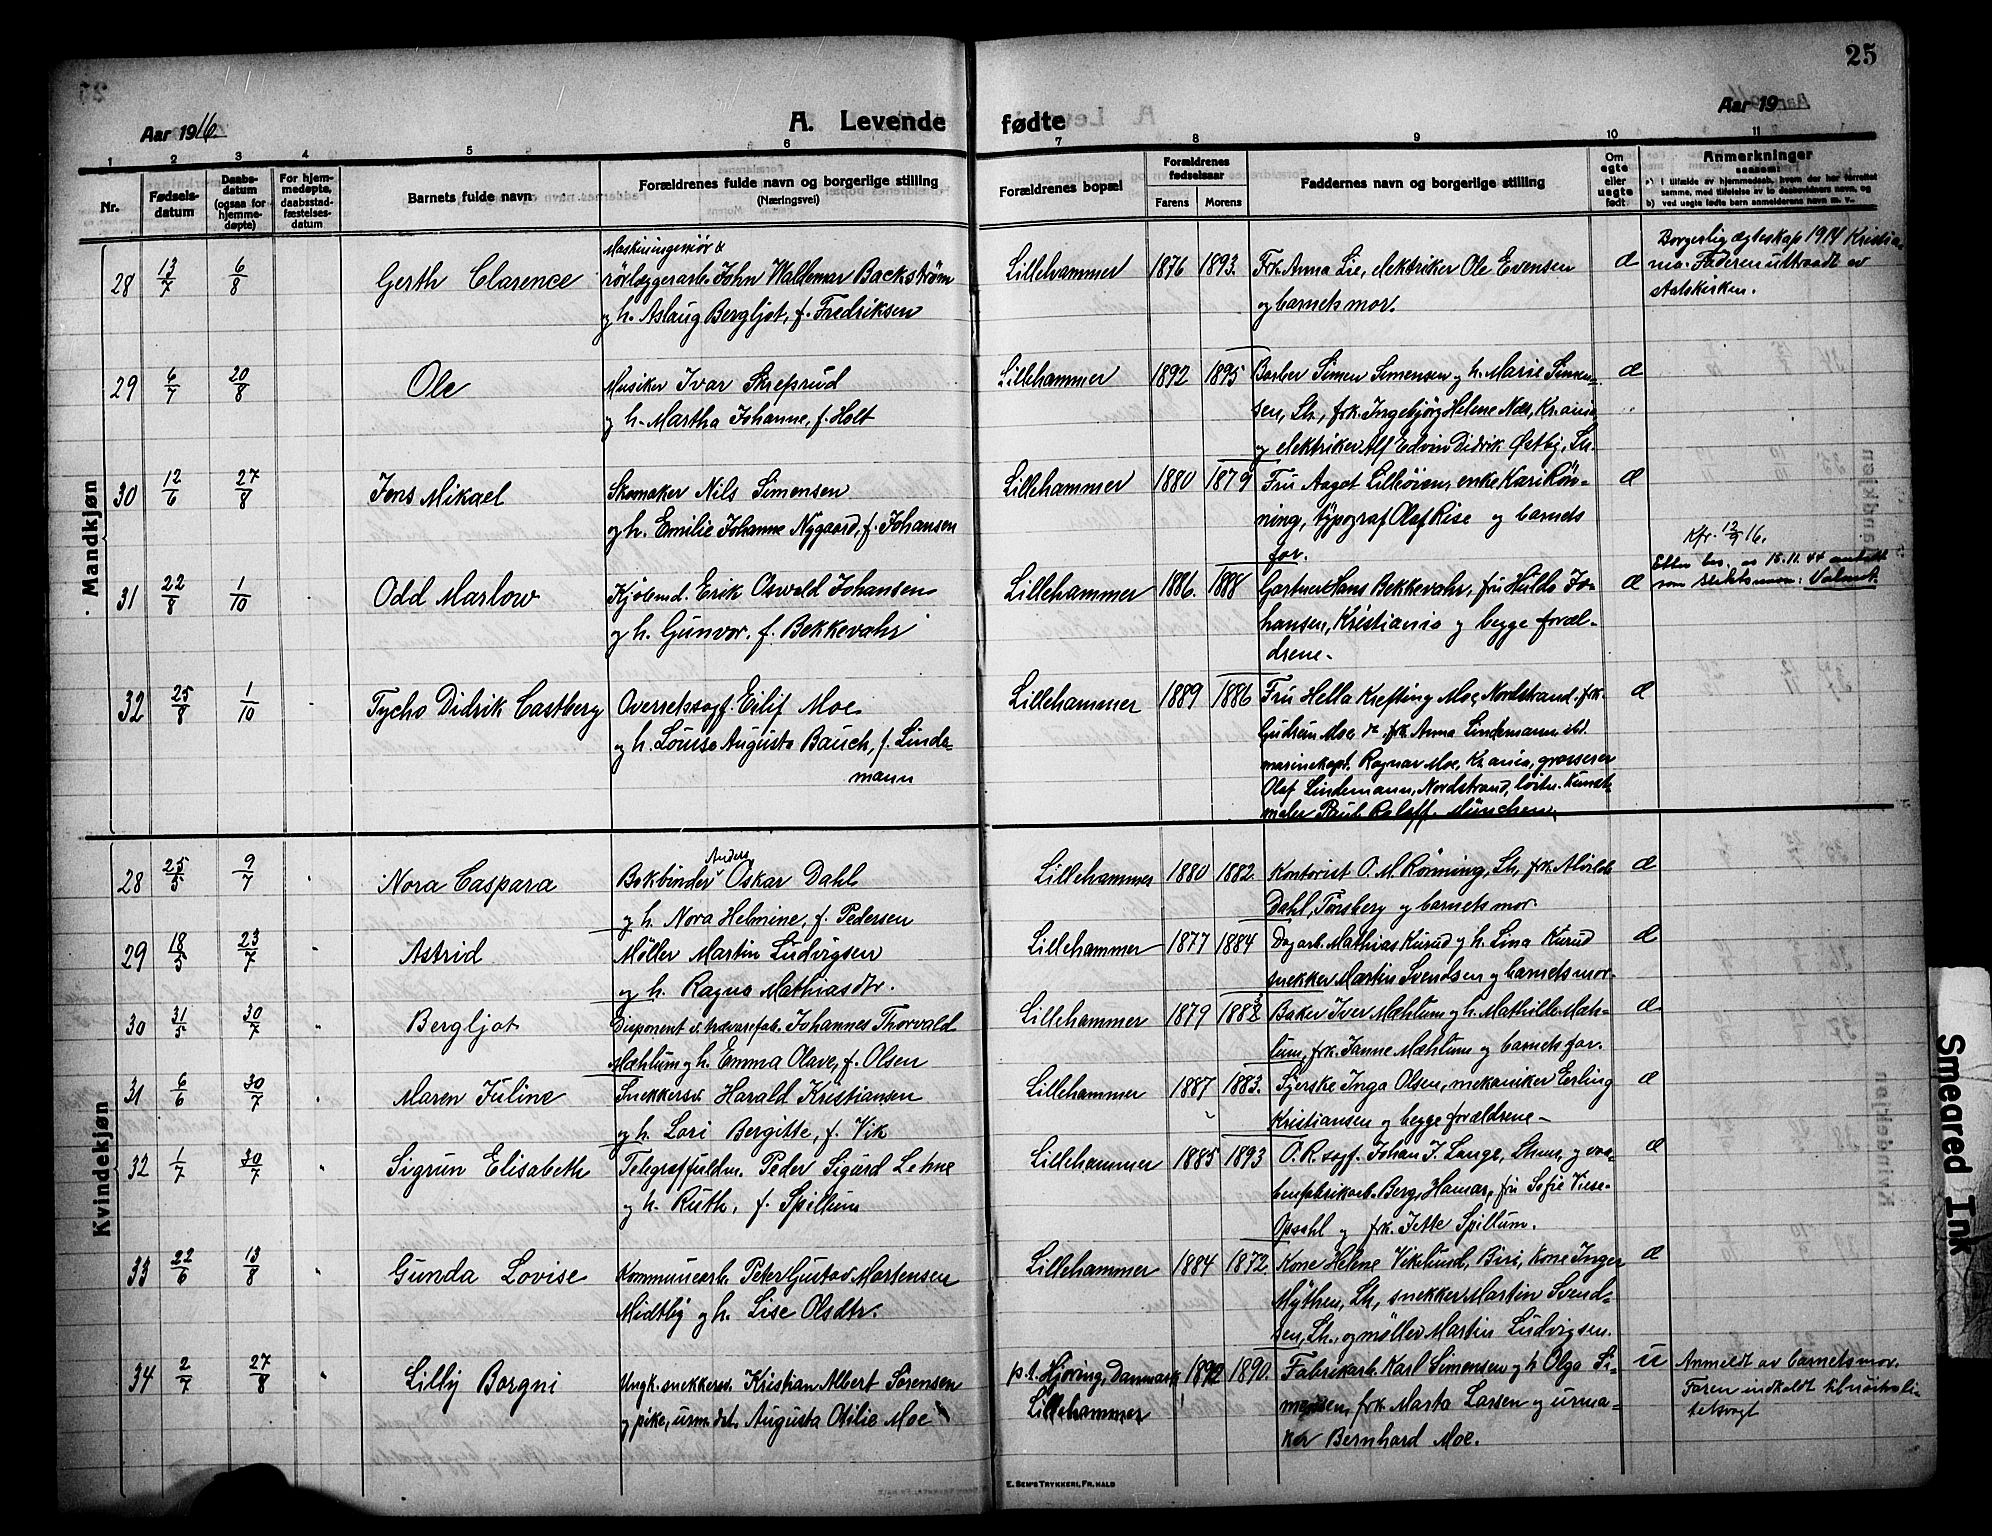 25
Aar 1916.
A. Levende fødte
Aar 19
1 2 3 4 5 6 7 8 9 10 11
Nr.
Fødsels-
datum
Daabs-
datum
(ogsaa for
hjemme-
døpte)
For hjem-
medøpte,
daabsstad-
fæstelses-
datum
Barnets fulde navn
Forældrenes fulde navn og borgerlige stilling
(Næringsvei)
Forældrenes bopæl
Forældrenes
fødselsaar
Farens Morens
Faddernes navn og borgerlige stilling
Om
egte
eller
uegte
født
Anmerkninger
saasom
a) i tilfælde av hjemmedaab, hvem der har forrettet
samme, med tilføielse av to daabsvidners navn, og
b) ved uegte fødte barn anmelderens navn m. v.
Mandkjøn
28 13/7 6/8 Gerth Clarence
Maskiningeniør &
rørlæggerarb. John Waldemar Backstrøm
og h. Aslaug Bergljot, f. Fredriksen
Lillehammer 1876 1893.
Frk. Anna Lie, elektriker Ole Evensen
og barnets mor.
æ
Borgerlig ægteskap 1914 Kristia-
nia. Faderen utraadt av
statskirken.
29 6/7 20/8 Ole
Musiker Ivar Skreprud
og h. Martha Johanne, f. Holt
Lillehammer 1892 1895
Barber Simen Simensen og h. Marie Simen-
sen, Lh., frk. Ingebjørg Helene Næs, Kr.ania
og elektriker Alf Edvin Didrik Østby, Lh.
æ
30 12/6 27/8 Jens Mikael
Skomaker Nils Simensen
og h. Emilie Johanne Nygaard, f. Johansen
Lillehammer 1880 1879
Fru Aagot Lilleøien, enke Kari Røn-
ning, typograf Olaf Rise og barnets
far.
æ
31 22/8 1/10 Odd Marlow
Kjøbmd. Erik Oswald Johansen
og h. Gunvor, f. Bekkevahr
Lillehammer 1886. 1888
Gartner Hans Bekkevahr, fru Hulda Jo-
hansen, Kristiania og begge foræl-
drene.
æ
Kfr. 12/9 16.
Etter bev. av 15.11.44 antatt
som slektsnavn: Valmot.
32 25/8 1/10 Tycho Didrik Castberg
Overretssagf. Eilif Moe
og h. Louise Augusta Bauch, f. Linde-
mann
Lillehammer 1889 1886
Fru Hella Krefting Moe, Nordstrand, frk.
Gudrun Moe, frk. Anna Lindemann
marinekapt. Ragnar Moe, Kr.ania, grosserer
Olaf Lindemann, Nordstrand, løitn. Kunst-
maler Paul Roloff, München.
æ
Kvindekjøn
28 25/5 9/7 Nora Caspara
Bokbinder Anders Oskar Dahl
og h. Nora Helmine, f. Pedersen
Lillehammer 1880 1882.
Kontorist O. M. Rønning, Lh., frk. Alvilde
Dahl, Tønsberg og barnets mor.
æ
29 18/5 23/7 Astrid
Møller Martin Ludvigsen
og h. Ragna Mathiasdtr.
Lillehammer 1877 1884
Dagarb. Mathias Kurud og h. Lina Kurud
snekker Martin Svendsen og barnets mor.
æ
30 31/5 30/7 Bergljot
Disponent v. trævarefab. Johannes Thorvald
Mæhlum og h. Emma Olave, f. Olsen
Lillehammer 1879 1883
Baker Iver Mæhlum og h. Mathilde Mæh-
lum, frk. Janne Mæhlum og barnets far.
æ
31 6/6 30/7 Maren Juline
Snekkersv. Harald Kristiansen
og h. Lovi Bergitte, f. Vik
Lillehammer 1887 1883.
Syerske Inga Olsen, mekaniker Erling
Kristiansen og begge forældrene.
æ
32 1/7 30/7 Sigrun Elisabeth
Telegraffuldm. Peder Sigurd Lehne
og h. Ruth, f. Spillum
Lillehammer 1885 1893
O.R.sagf. Johan J. Lange, Lhmr, og
Berg, Hamar, fru Sofie Viese-
Opsahl og frk. Jette Spillum.
æ
33 22/6 13/8 Gunda Lovise
Kommunearb. Peter Gustav Martensen
Midtby og h. Lise Olsdtr.
Lillehammer 1884 1872.
Kone Helene Vikelund, Biri, Kone Inger
Mythen, Lh., snekker Martin Svend-
sen, Lh., og møller Martin Ludvigsen.
æ
34 2/7 27/8 Lilly Borgni
Ungk. snekkersv. Kristian Albert Sørensen
og pike, urm.dat. Augusta Otilie Moe
p.t. Hjøring, Danmark
Lillehammer 1892 1890.
Fabrikarb. Karl Simensen og h. Olga Si-
mensen, frk. Marta Larsen og urma-
ker Bernhard Moe.
u
Anmeldt av barnets mor.
Faren indkaldt til nøitrali-
tetsvagt
E. Sem's Trykkeri, Fr.hald
Smeared Ink